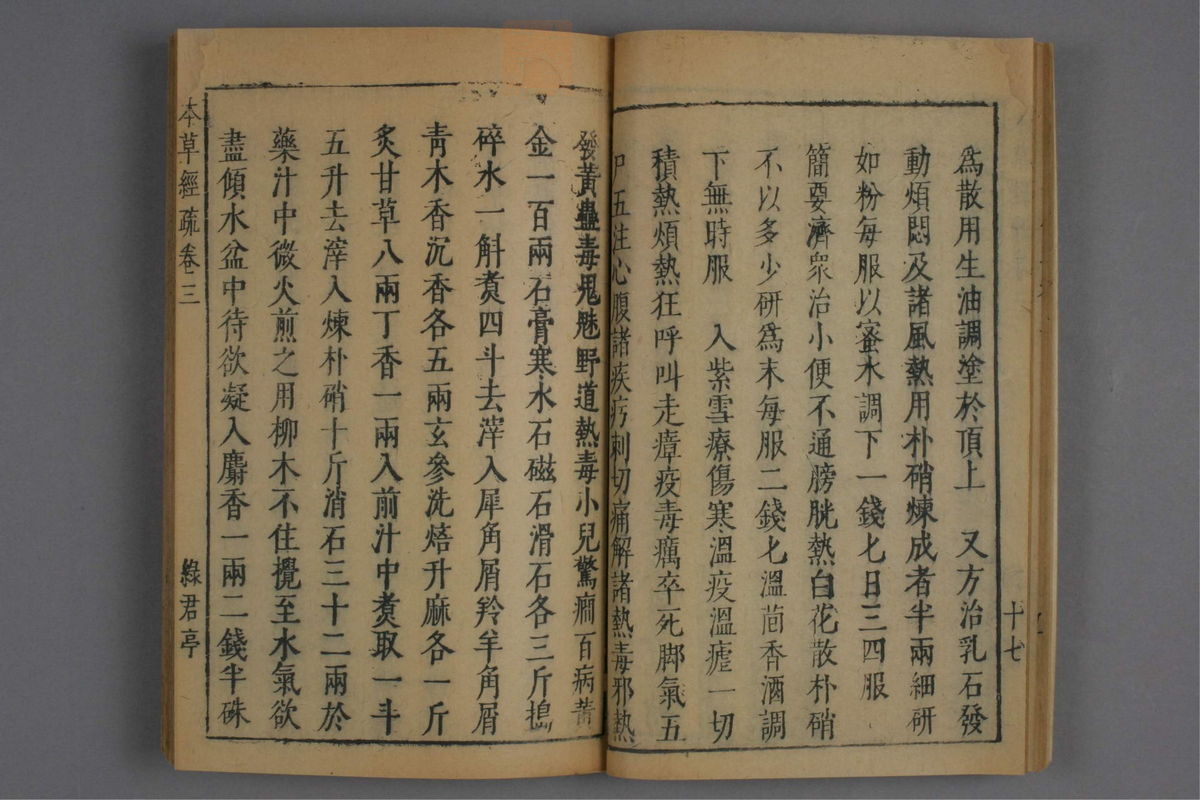 為散用生油調塗於頂上　又方治乳石發
動煩悶及諸風熱用朴硝煉成者半兩細研
如粉每服以蜜水調下一錢匕日三四服
簡要濟衆治小便不通膀胱熱白花散朴硝
不以多少研為末每服二錢匕溫茴香酒調
下無時服　入紫雪療傷寒溫疫溫瘧一切
積熱煩熱狂呼叫走瘴疫毒癘卒死脚氣五
尸五注心腹諸疾㽲刺切痛解諸熱毒邪熱
十七
發黃蠱毒鬼魅野道熱毒小兒驚癎百病黃
金一百兩石膏寒水石磁石滑石各三斤搗
碎水一斛煑四斗去滓入犀角屑羚羊角屑
靑木香沉香各五兩玄參洗焙升麻各一斤
炙甘草八兩丁香一兩入前汁中煑取一斗
五升去滓入煉朴硝十斤消石三十二兩於
藥汁中微火煎之用柳木不住攪至水氣欲
盡傾水盆中待欲凝入麝香一兩二錢半硃
本草經疏 卷三
綠君亭